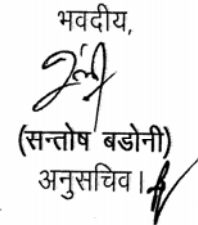 भवदीय,
(सन्तोष बडोनी)
अनुसचिव।